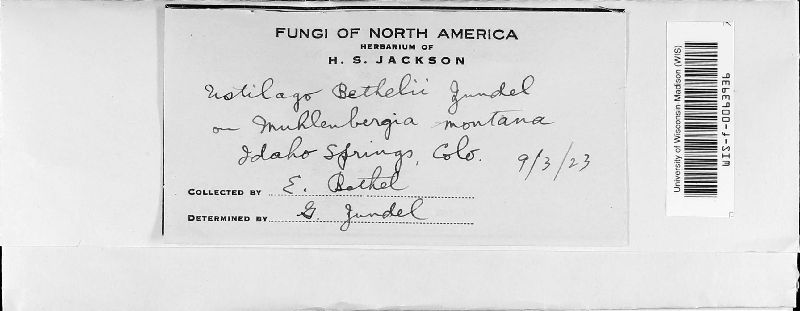 FUNGI OF NORTH AMERICA
HERBARIUM OF
H. S. JACKSON
Ustilago Bethelii Zundel
on Muhlenbergia montana
Idaho Springs, Colo. 9/3/23
COLLECTED BY E. Bethel
DETERMINED BY G Zundel
University of Wisconsin Madison (WIS)
WIS-f-0063936